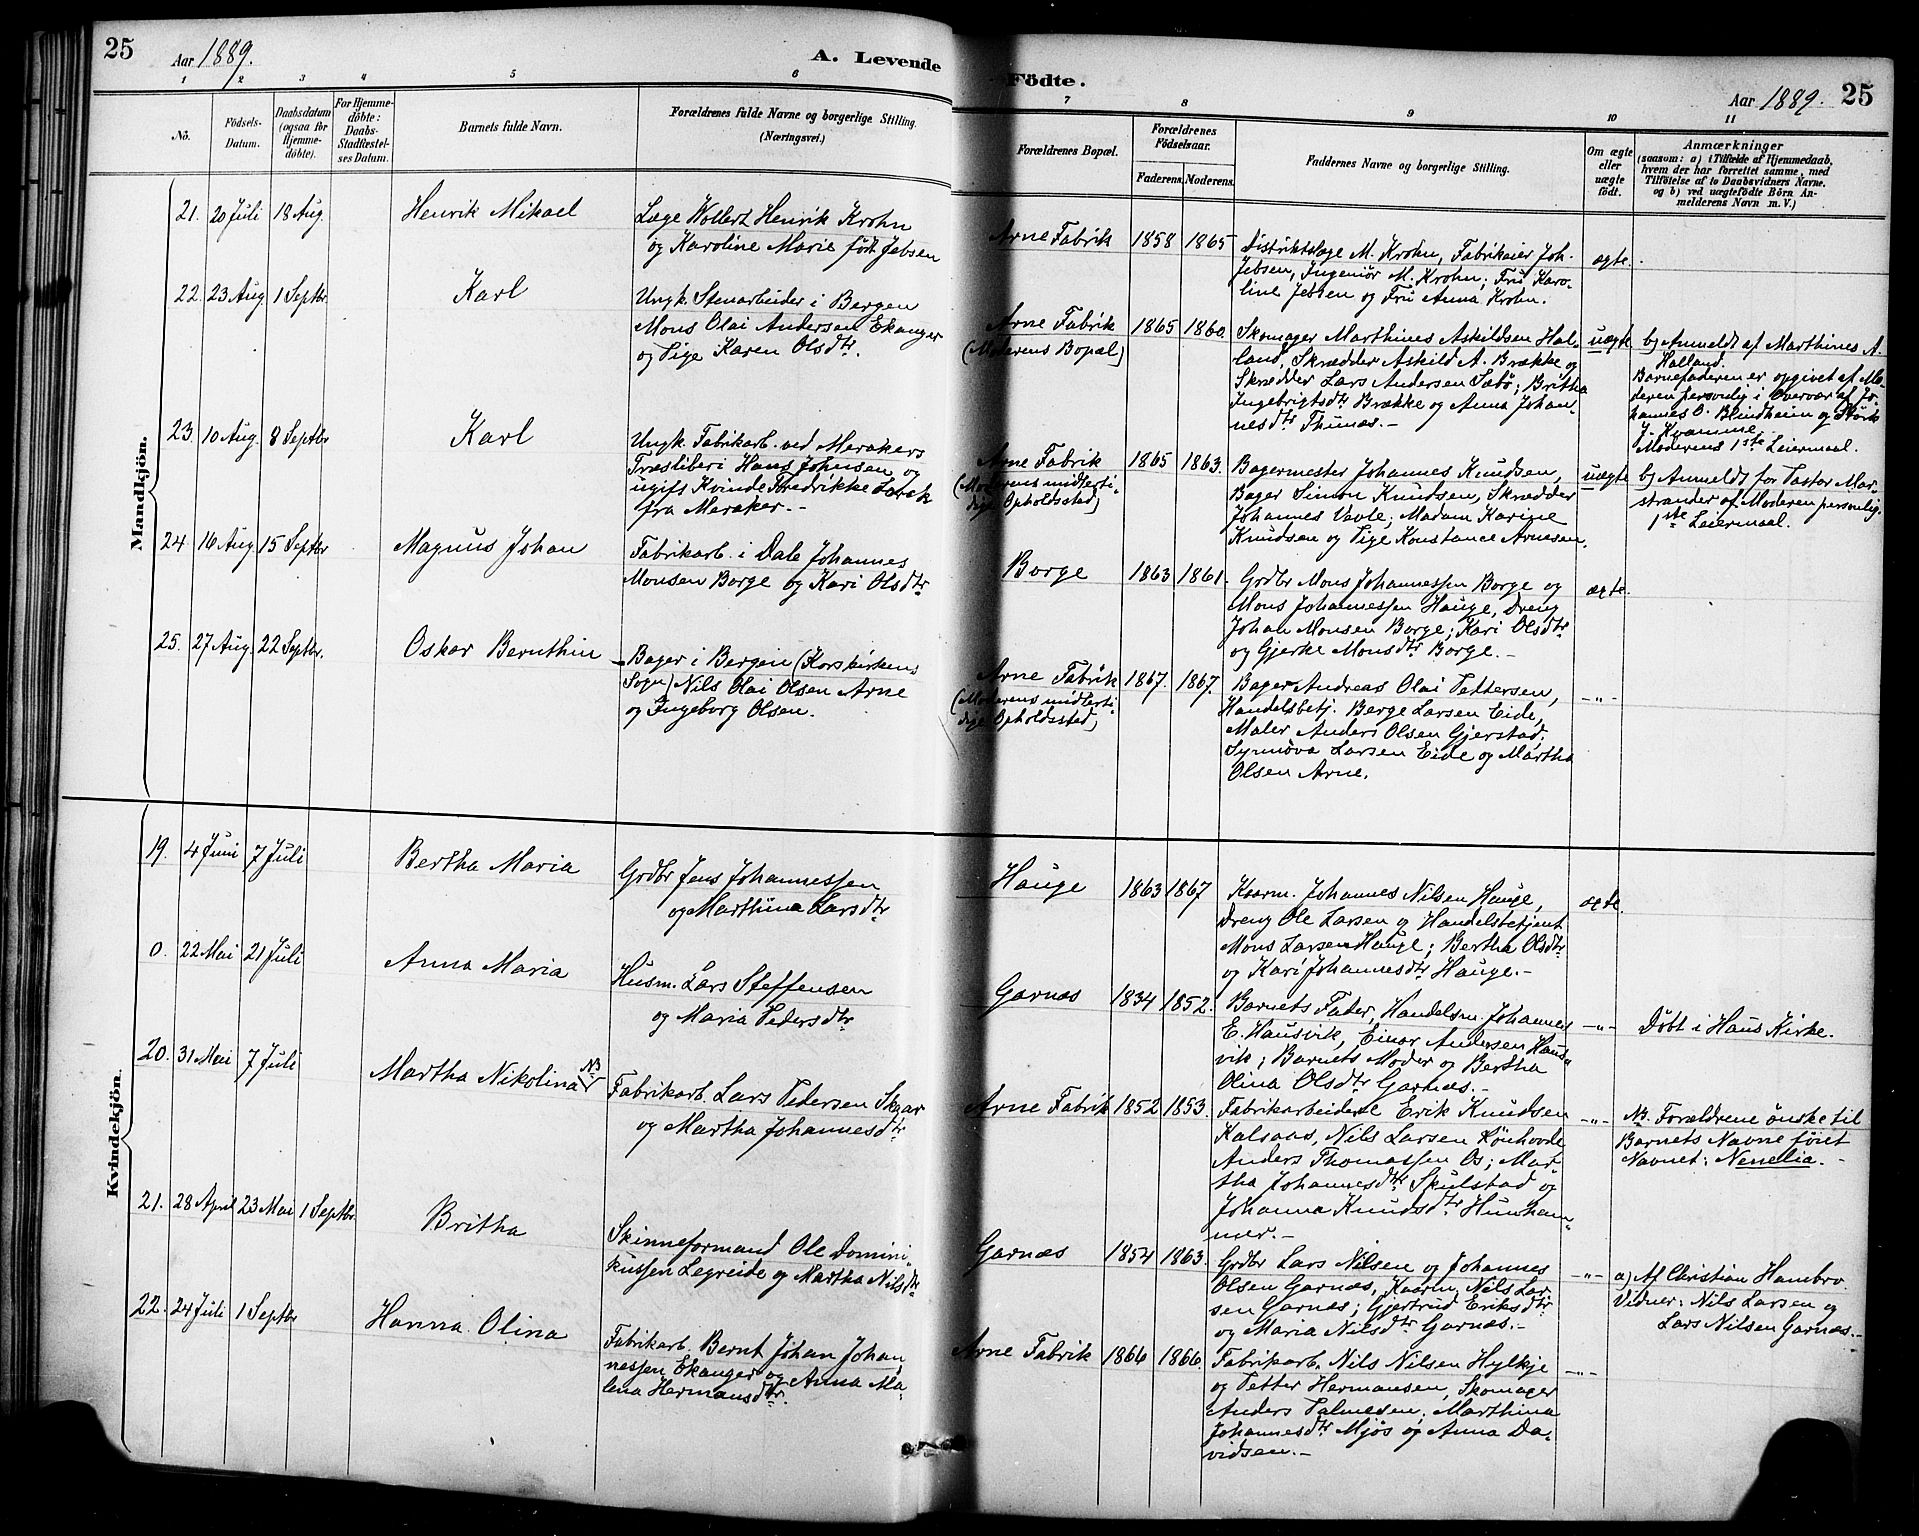 25
Aar 1889.
A. Levende
1 2 3 4 5 6
No.
Födsels-
Datum.
Daabsdatum
(ogsaa for
Hjemme-
döbte).
For Hjemme-
döbte:
Daabs-
Stadfæstel-
ses Datum.
Barnets fulde Navn.
Forældrenes fulde Navne og borgerlige Stilling.
(Næringsvei.)
Mandkjön.
21. 20 Juli 18 Aug. Henrik Mikael
Læge Wollert Henrik Krohn
og Karoline Marie født Jebsen
22. 23 Aug. 1 Septbr Karl
Ungk. Stenarbeider i Bergen
Mons Olai Andersen Ekanger
og Pige Karen Olsdtr.
23. 10 Aug. 8 Septbr Karl
Ungk. Fabrikarb. ved Merakers
Træsliberi Hans Johnsen og
ugift Kvinde Fredrikke
fra Meraker. -
24 16 Aug 15 Septbr Magnus Johan
Fabrikarb. i Dale Johannes
Monsen Borge og Kari Olsdtr
25. 27 Aug 22 Septbr. Oskar Bernthin
Bager i Bergen (Korskirken
Sogn) Nils Olai Olsen Arne
og Ingeborg Olsen.
Kvindekjön.
19. 4 Juni 7 Juli Bertha Maria
Grdbr Jens Johannessen
og Marthina Larsdtr
0. 22 Mai 21 Juli Anna Maria
Husm. Lars Steffensen
og Maria Pedersdtr
20. 31 Mai 7 Juli Martha Nikolina NB
Fabrikarb. Lars Pedersen Skaar
og Martha Johannesdtr
21. 28 April 23 Mai 1 Septbr. Britha
Skinneformand Ole Domini-
kussen Legreide og Martha Nilsdtr
22. 24 Juli 1 Septbr Hanna Olina
Fabrikarb. Bernt Johan Johan
nessen Ekanger og Anna Ma-
lena Hermansdtr.
Födte.
Aar 1889. 25
7 8 9 10 11
Forældrenes Bopæl.
Forældrenes
Födselsaar.
Faderens. Moderens.
Faddernes Navne og borgerlige Stilling.
Om ægte
eller
uægte
født.
Anmærkninger
(saasom: a) i Tilfælde af Hjemmedaab,
hvem der har forrettet samme, med
Tilföielse af to Daabsvidners Navne,
og b) ved uægtefödte Börn An-
melderens Navn m. V.)
Arne Fabrik 1858 1865
Distriktslæge M. Krohn, Fabrikeier Joh.
Jebsen, Ingeniør M. Krohn; Fru Karo-
line Jebsen og Fru Anna Krohn.
ægte.
Arne Fabrik 1865 1860.
(Moderens Bopæl)
Skomager Marthines Askildsen Hal-
land, Skrædder Askild A. Brække og
Skrædder Lars Andersen Sæbö; Britha
Ingebrigtsdtr Brække og Anna Johan-
nesdtr Thunæs. -
uægte
b) Anmeldt af Marthines A.
Halland.
Barnefaderen er opgivet af Mo-
deren personlig i Overvær af Jo-
hannes O. Blindheim og Störk
J. Kvamme.
Moderens 1ste Leiermaal.
Arne Fabrik 1865 1863.
(Moderens midlerti-
dige Opholdssted)
Bagermester Johannes Knudsen,
Bager Simon Knudsen, Skrædder
Johannes Vevle; Madam Karine
Knudsen og Pige Konstance Arnesen.
uægte
b) Anmeldt for Pastor Mar-
strander af Moderen personlig.
1ste Leiermaal.
Borge 1863 1861.
Grdbr Mons Johannessen Borge og
Mons Johannessen Hauge, Dreng
Johan Monsen Borge; Kari Olsdtr
og Gjerke Monsdtr Borge. -
ægte.
Arne Fabrik 1867. 1867.
(Moderens midlerti-
dige Opholdssted)
Bager Andreas Olai Pettersen,
Handelsbetj. Berge Larsen Eide,
Maler Anders Olsen Gjerstad;
Synnöva Larsen Eide og Martha
Olsen Arne.
-"-
Hauge 1863 1867.
Kaarm. Johannes Nilsen Hauge,
Dreng Ole Larsen og Handelsbetjent
Mons Larsen Hauge; Bertha Olsdtr
og Kari Johannesdtr Hauge. -
ægte.
Garnæs 1834 1852.
Barnets Fader, Handelsm. Johannes
E. Hausvik, Einar Andersen Haus-
vik; Barnets Moder og Bertha
Olina Olsdtr Garnæs. -
-"-
Döbt i Haus Kirke.
Arne Fabrik 1852 1853.
Fabrikarbeiderne Erik Knudsen
Kalsaas, Nils Larsen Rönhovde
Anders Thomassen Os; Mar-
tha Johannesdtr Skulstad og
Johanna Knudsdtr Hunham-
mer. -
-"-
NB. Forældrene önske til
Barnets Navne föiet
Navnet: Nenellia. -
Garnæs 1854 1863.
Grdbr Lars Nilsen og Johannes
Olsen Garnæs, Kaarm. Nils Lar-
sen Garnæs; Gjertrud Eriksdtr
og Maria Nilsdtr Garnæs. -
-"-
a) Af Christian Hambro.
Vidner: Nils Larsen og
Lars Nilsen Garnæs. -
Arne Fabrik 1864 1866.
Fabrikarb. Nils Nilsen Hylkje
og Petter Hermansen, Skomager
Anders Palmesen; Marthina
Johannesdtr Mjös og Anna Da-
vidsen. -
-"-